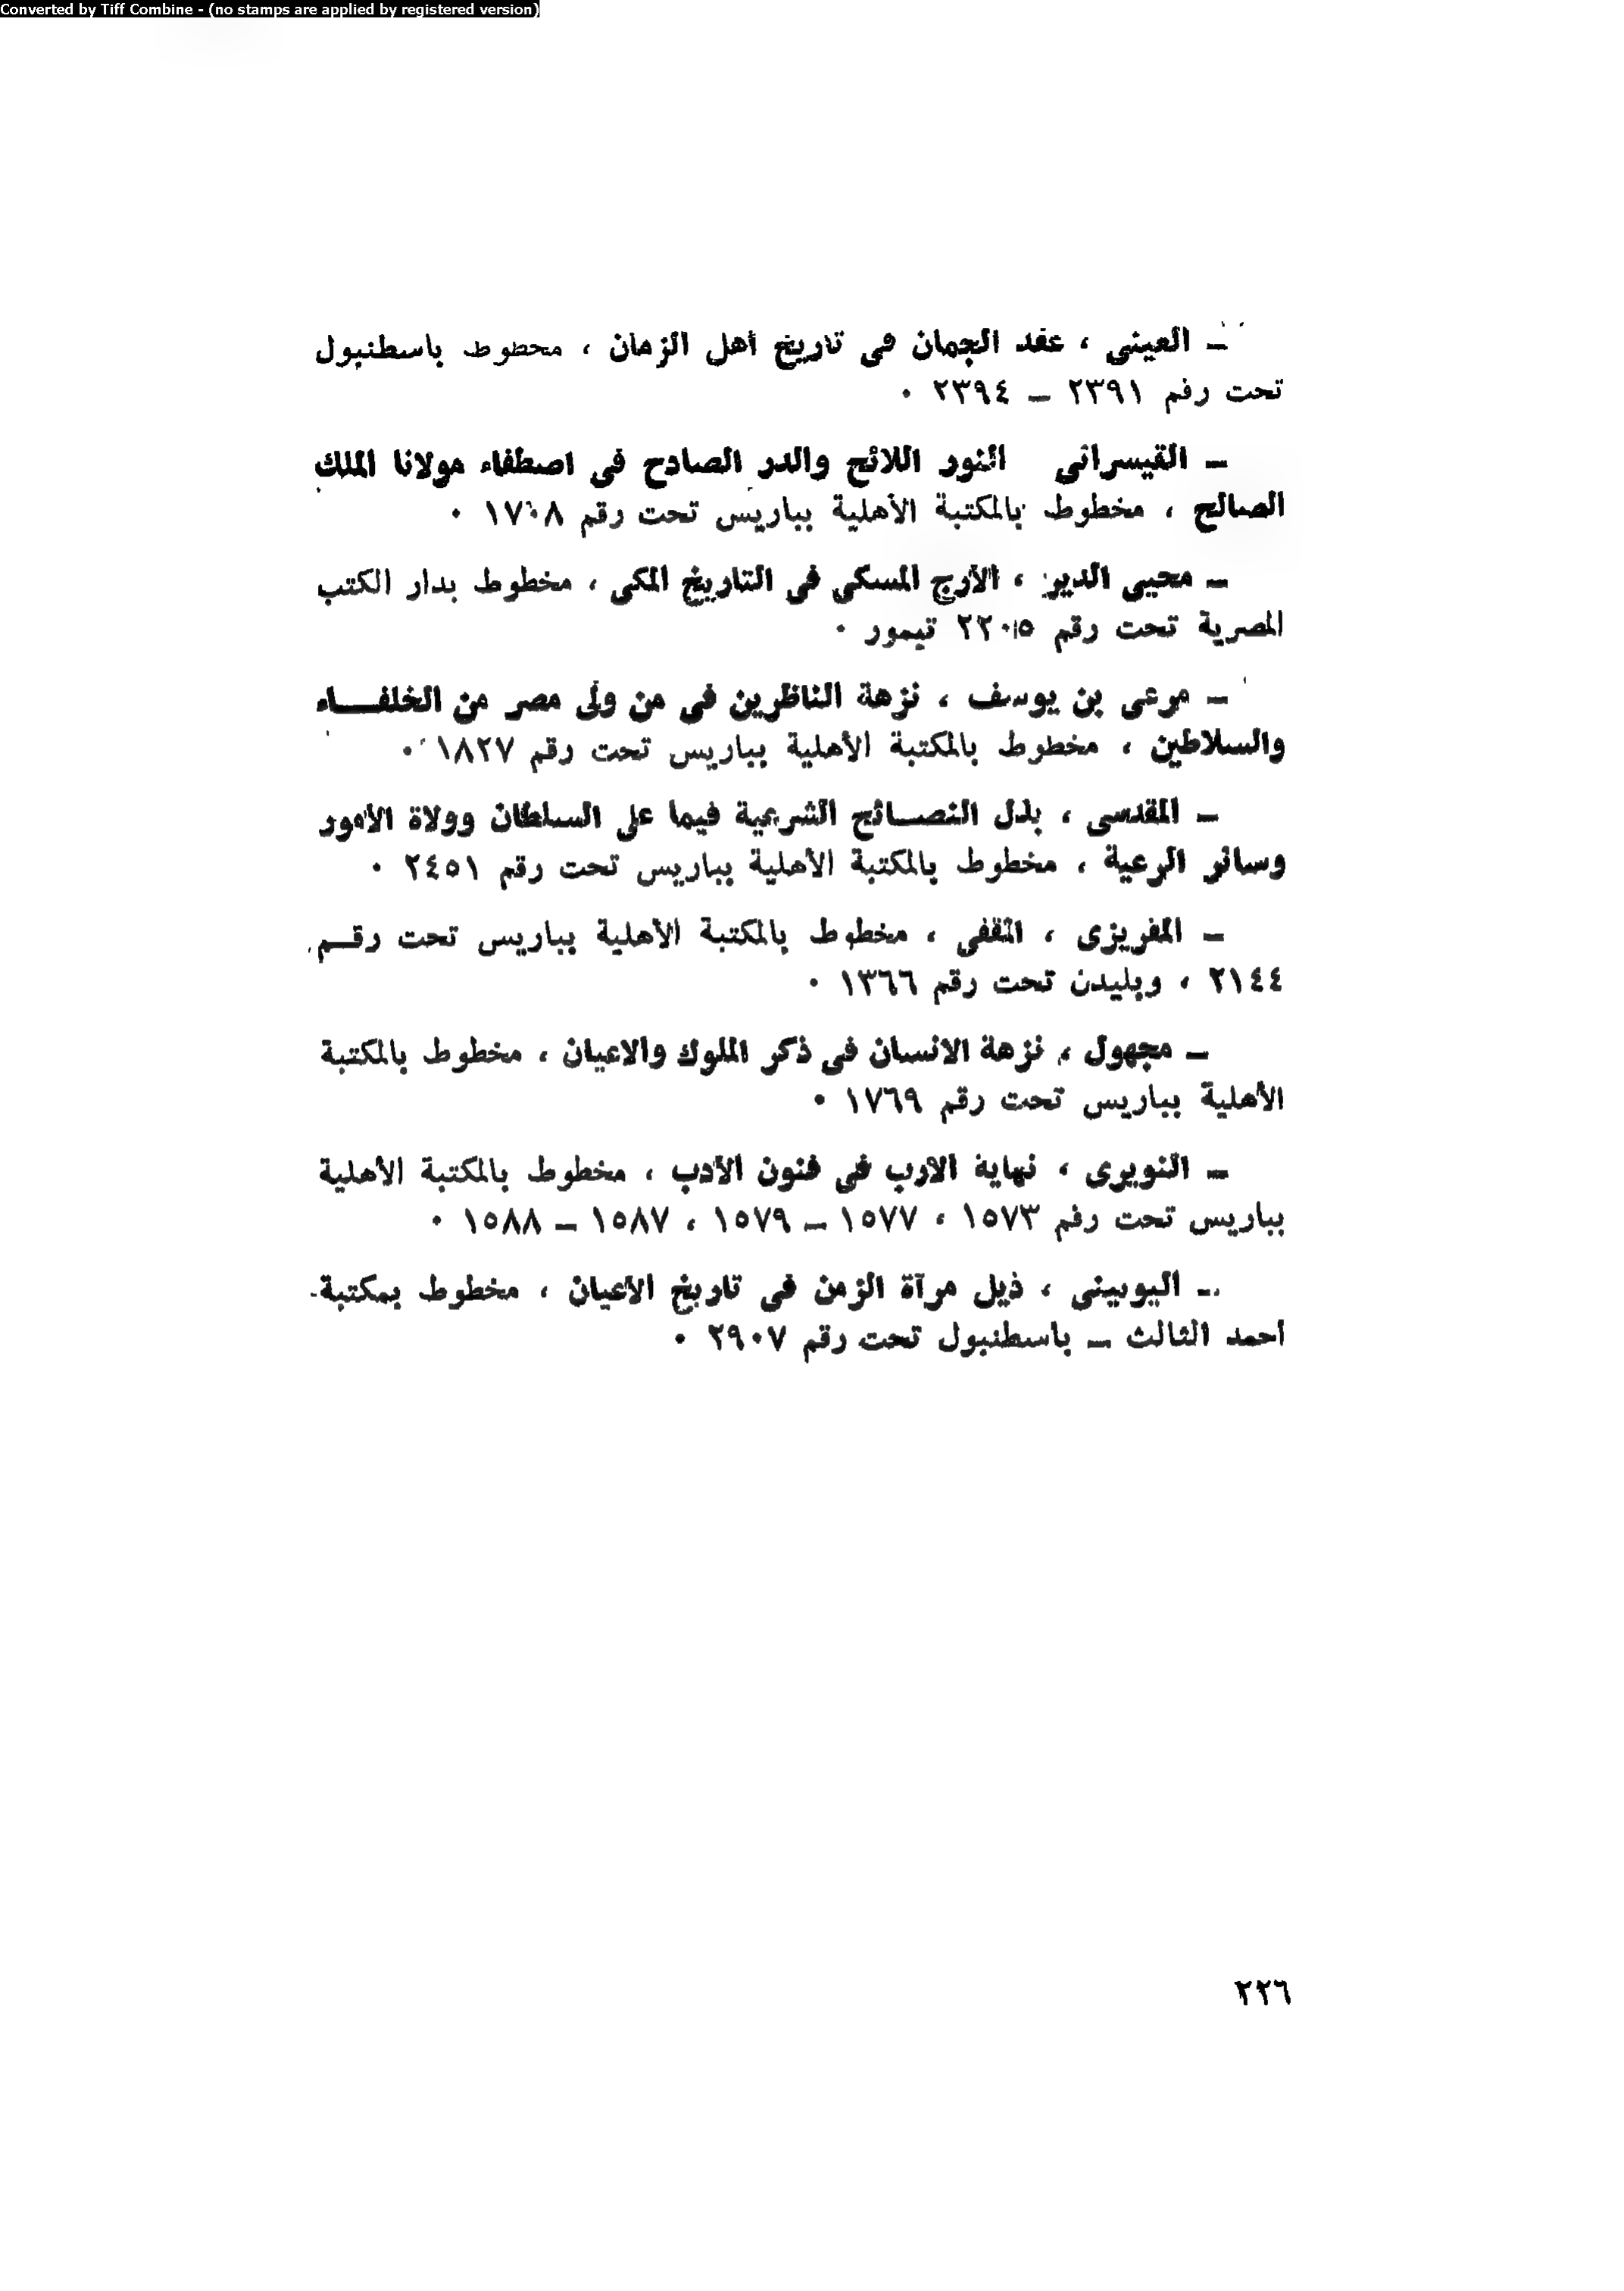 Converted by Tiff Combine - (no stamps are applied by registered version)
ـ العينى ، عقد الجمان فى تاريخ أهل الزمان ، مخطوط باسطنبول
تحت رقم ٢٣٩١ ـ ٢٣٩٤ ٠
ـ القيسرانى النور اللائح والدر الصادح فى اصطفاء مولانا الملك
الصالح ، مخطوط بالمكتبة الأهلية بباريس تحت رقم ١٧٠٨ ٠
ـ محيى الدين ، الأرج المسكى فى التاريخ المكى ، مخطوط بدار الكتب
المصرية تحت رقم ٢٢٠٥ تيمور ٠
ـ مرعى بن يوسف ، نزهة الناظرين فى من ولى مصر من الخلفـــاء
والسلاطين ، مخطوط بالمكتبة الأهلية بباريس تحت رقم ١٨٢٧ ٠
ـ المقدسى ، بذل النصــائح الشرعية فيما على السلطان وولاة الأمور
وسائر الرعية ، مخطوط بالمكتبة الأهلية بباريس تحت رقم ٢٤٥١ ٠
ـ المقريزى ، المقفى ، مخطوط بالمكتبة الأهلية بباريس تحت رقــم
٢١٤٤ ، وبليدن تحت رقم ١٣٦٦ ٠
ـ مجهول ، نزهة الانسان فى ذكر الملوك والاعيان ، مخطوط بالمكتبة
الأهلية بباريس تحت رقم ١٧٦٩ ٠
ـ النويرى ، نهاية الارب فى فنون الأدب ، مخطوط بالمكتبة الأهلية
بباريس تحت رقم ١٥٧٣ ، ١٥٧٧ ـ ١٥٧٩ ، ١٥٨٧ ـ ١٥٨٨ ٠
ـ اليونينى ، ذيل مرآة الزمن فى تاريخ الأعيان ، مخطوط بمكتبة
أحمد الثالث ـ باسطنبول تحت رقم ٢٩٠٧ ٠
٢٢٦